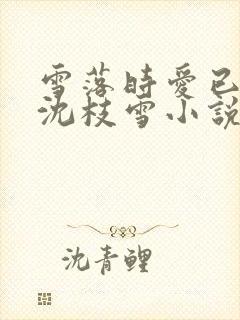 雪落時愛已
沈枝雪小說
沈青鯉